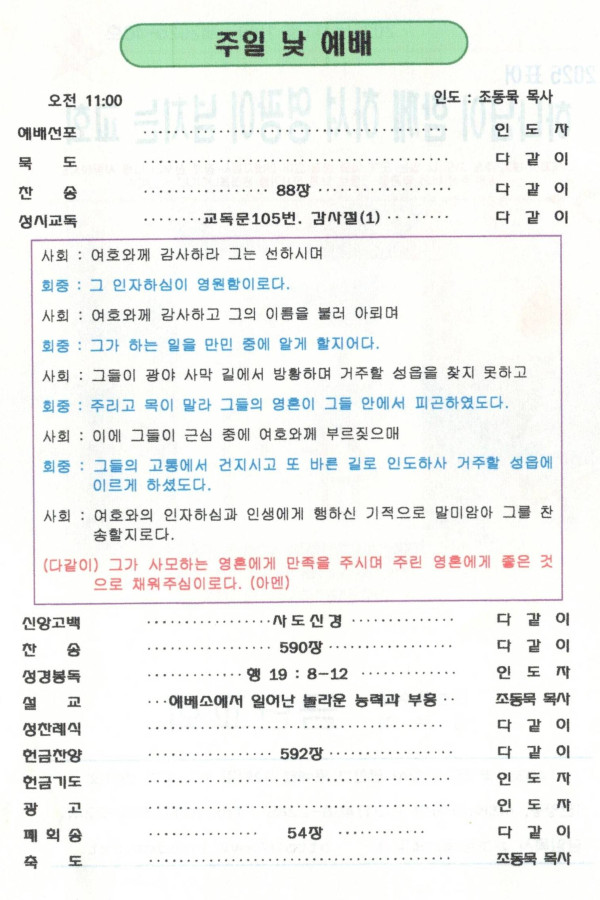 주일 낮 예배
오전 11:00 인도 : 조동묵 목사
예배선포 ······································ 인 도 자
묵 도 ······································ 다 같 이
찬 송 ················ 88장 ················· 다 같 이
성시교독 ········교독문105번. 감사절(1)·· ······ 다 같 이
사회 : 여호와께 감사하라 그는 선하시며
회중 : 그 인자하심이 영원함이로다.
사회 : 여호와께 감사하고 그의 이름을 불러 아뢰며
회중 : 그가 하는 일을 만민 중에 알게 할지어다.
사회 : 그들이 광야 사막 길에서 방황하며 거주할 성읍을 찾지 못하고
회중 : 주리고 목이 말라 그들의 영혼이 그들 안에서 피곤하였도다.
사회 : 이에 그들이 근심 중에 여호와께 부르짖으매
회중 : 그들의 고통에서 건지시고 또 바른 길로 인도하사 거주할 성읍에
이르게 하셨도다.
사회 : 여호와의 인자하심과 인생에게 행하신 기적으로 말미암아 그를 찬
송할지로다.
(다같이) 그가 사모하는 영혼에게 만족을 주시며 주린 영혼에게 좋은 것
으로 채워주심이로다. (아멘)
신앙고백 ················사도신경 ·············· 다 같 이
찬 송 ················ 590장················ 다 같 이
성경봉독 ············ 행 19 : 8-12 ············ 인 도 자
설 교 ···에베소에서 일어난 놀라운 능력과 부흥 ·· 조동묵 목사
성찬례식 ····································· 다 같 이
헌금찬양 ················ 592장················ 다 같 이
헌금기도 ······································ 인 도 자
광 고 ······································ 인 도 자
폐 회 송 ·············· 54장 ············ 다 같 이
축 도 ······································ 조동묵 목사